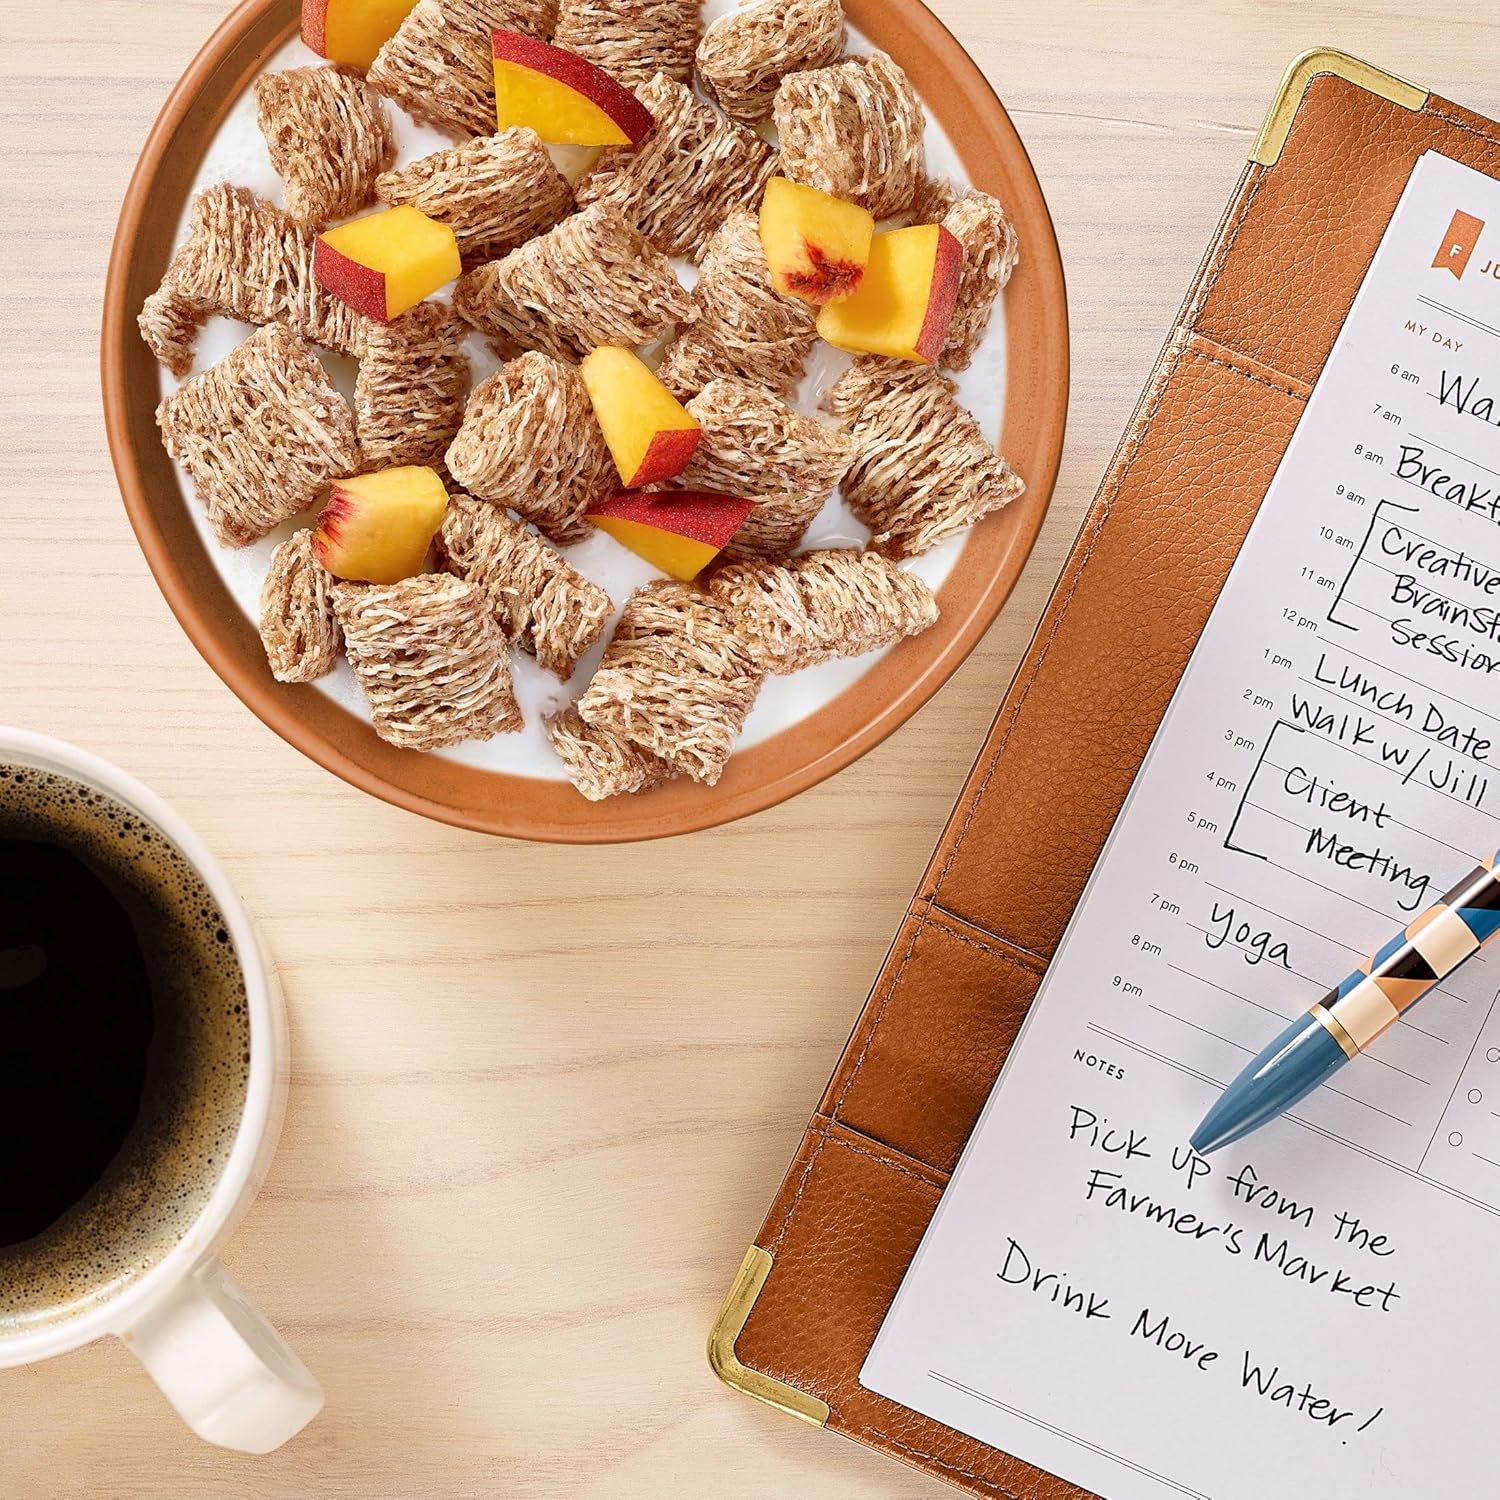 F
MY DAY
6 am
7 am
8 am
9 am
10 am Creative
11 am
Session
12 pm
1 pm Lunch Date
2 pm Walk w/ Jill
3 pm
4 pm Client
5 pm Meeting
6 pm
7 pm Yoga
8 pm
9 pm
NOTES
Pick up from the
Farmer's Market
Drink More Water!